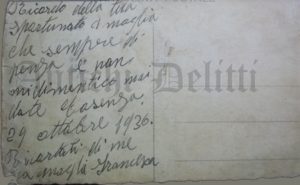 Ricordo della tua
sfortunata moglia
che sempre di
penza e non
midimentico mai
date Cosenza
29 ottobre 1936.
Ricordati di me
tua moglia Francesca
Delitti